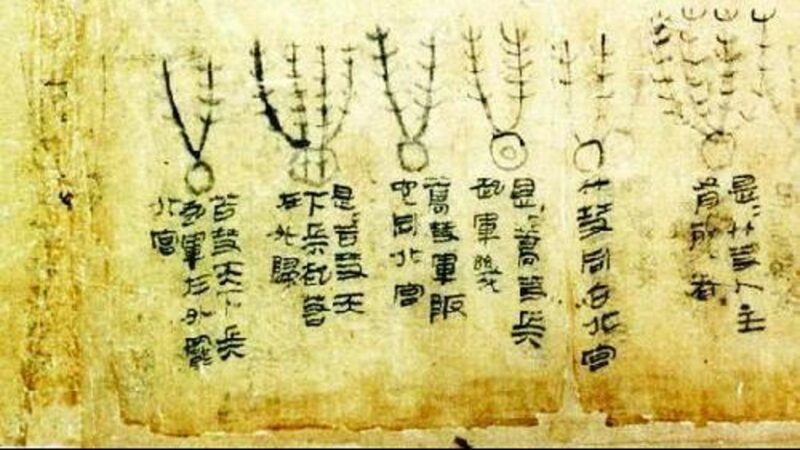 是=竹彗人主
有死者
竹彗同占北宮
是=蒿彗兵
起軍幾
蒿彗軍阪
它同北宮
是=苫彗天
下兵起若
在外歸
苫彗天下兵
起軍在外罷
北宮